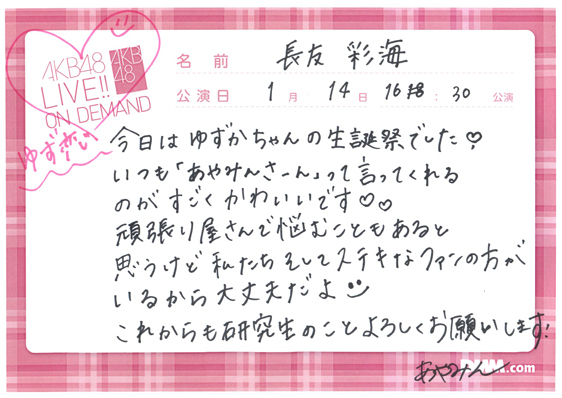 AKB48
LIVE!!
ON DEMAND
AKB
48
ゆず恋い
名前 長友 彩海
公演日 1月 14日 16時:30 公演
今日はゆずかちゃんの生誕祭でした♡
いつも「あやみんさーん」って言ってくれる
のがすごくかわいいです♡♡
頑張り屋さんで悩むこともあると
思うけど私たちそしてステキなファンの方が
いるから大丈夫だよ
これからも研究生のことよろしくお願いします!
あやみん
DMM.com